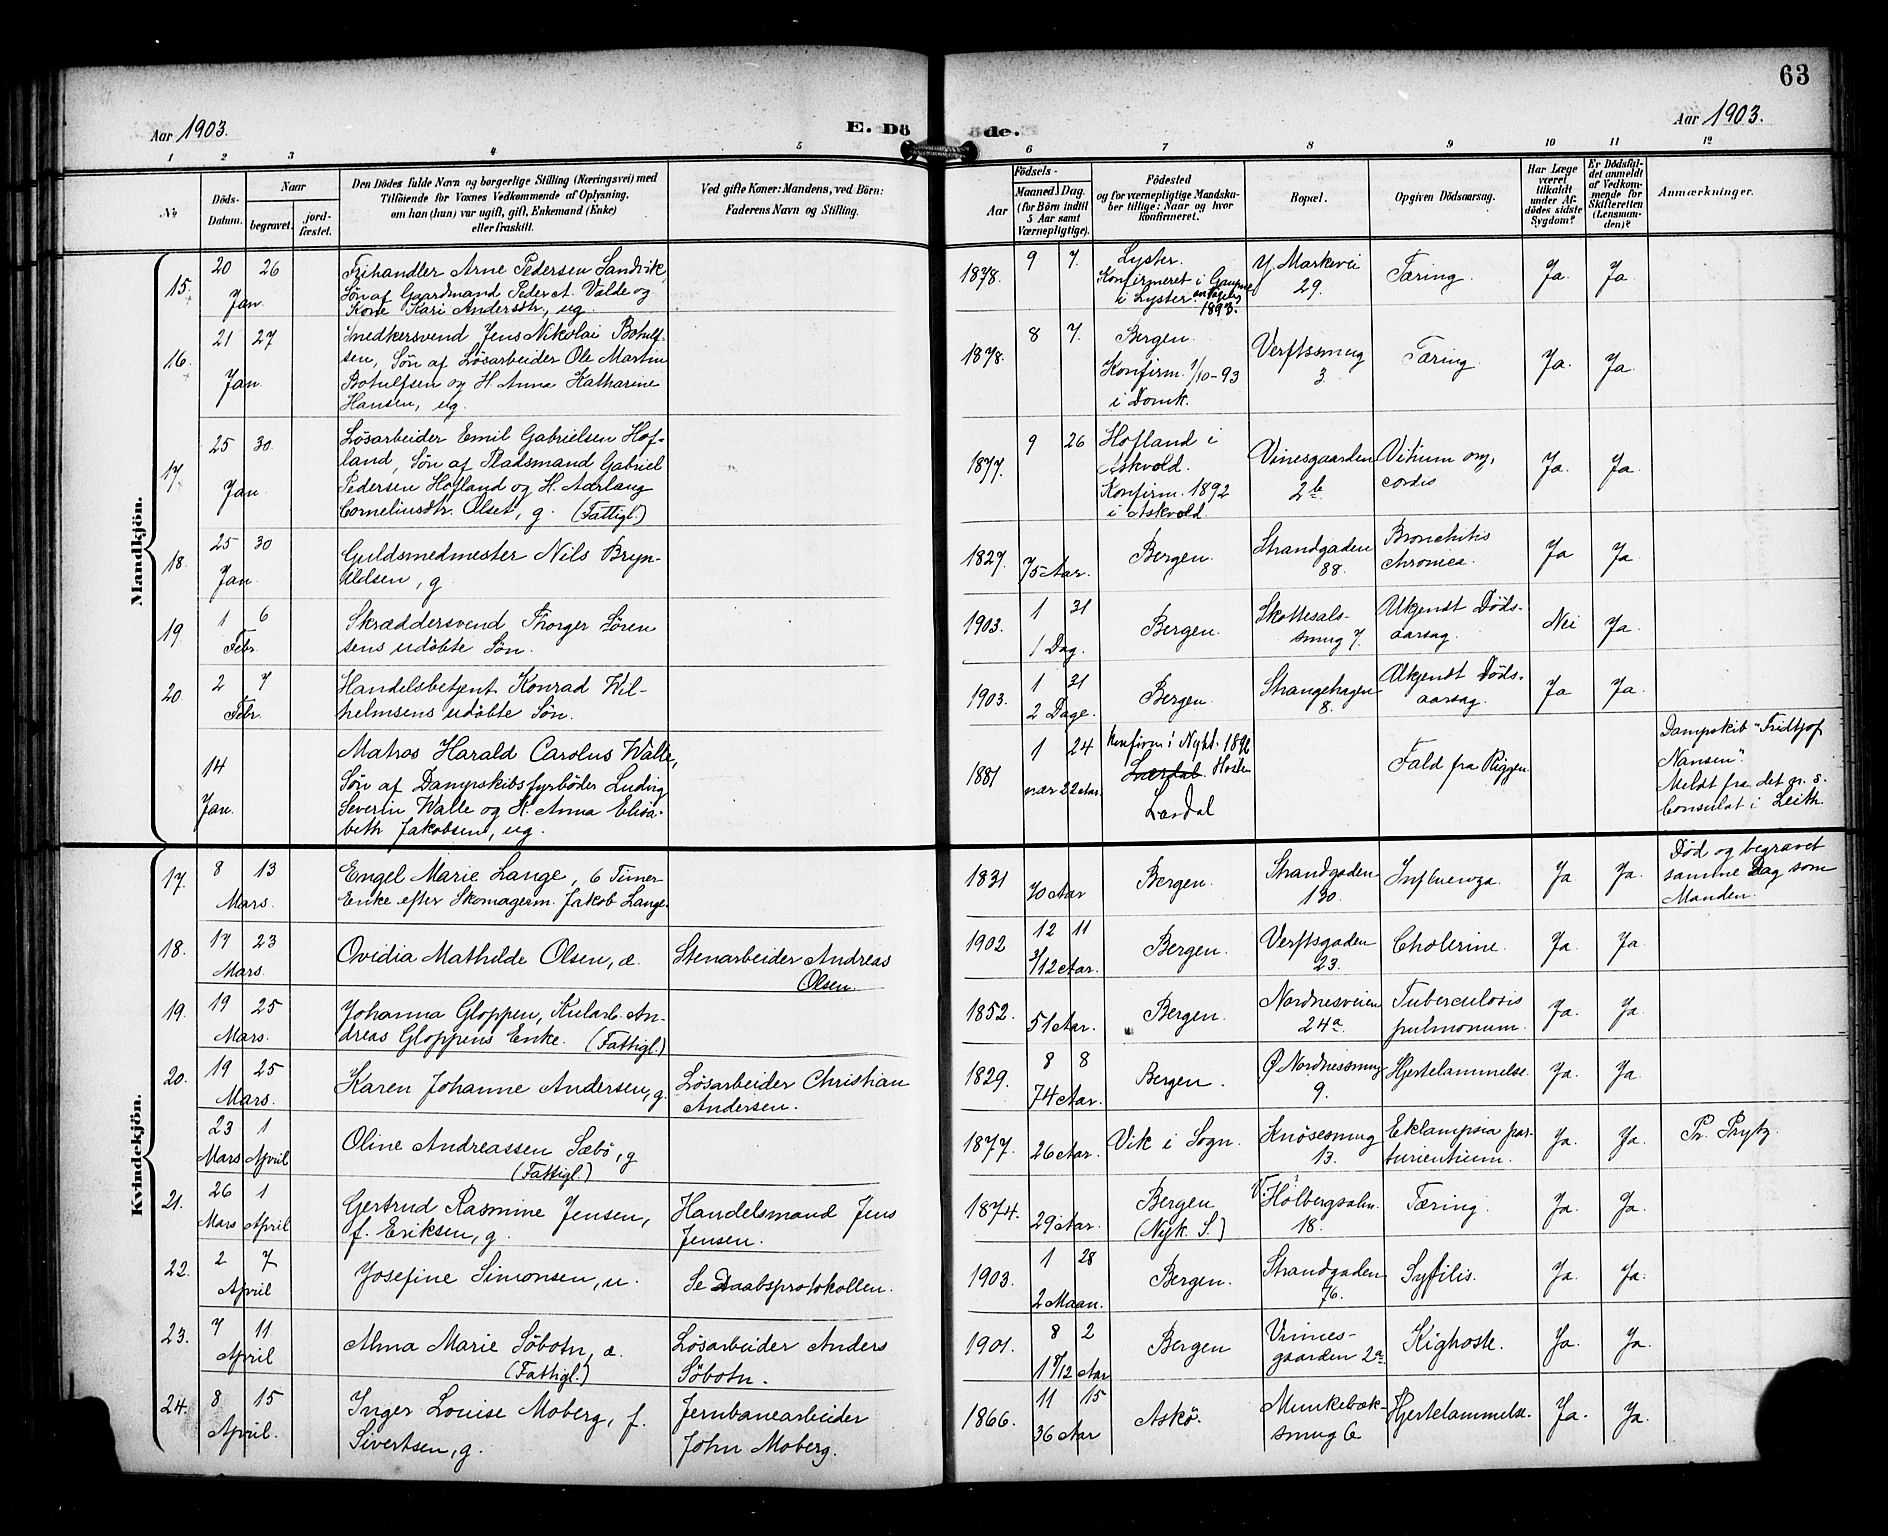 63
Aar 1903.
E. Döde.
Aar 1903.
1 2 3 4 5 6 7 8 9 10 11 12
№
Döds-Datum.
Naar
begravet.
jord-fæstet.
Den Dödes fulde Navn og borgerlige Stilling (Næringsvei) med
Tilföiende for Voxnes Vedkommende af Oplysning,
om han (hun) var ugift, gift, Enkemand (Enke)
eller fraskilt.
Ved gifte Koner: Mandens, ved Börn:
Faderens Navn og Stilling.
Födsels-
Aar
Maaned. Dag.
(for Börn indtil
5 Aar samt
Værnepligtige).
Födested
og for værnepligtige Mandska-
ber tillige: Naar og hvor
konfirmeret.
Bopæl.
Opgiven Dödsaarsag.
Har Læge
været
tilkaldt
under Af-
dödes sidste
Sygdom?
Er Dödsfal-
det anmeldt
af Vedkom-
mende for
Skifteretten
(Lensman-
den)?
Anmærkninger.
Mandkjön.
15. 20 Jan. 26
Frihandler Arne Pedersen Sandvik,
Søn af Gaardmand Peder A. Valde og
Kone Kari Andersdtr., ug.
1878. 9 7.
Lyster.
Konfirmeret i Gaupne
i Lyster
1893.
Y. Markevei
29.
Tæring.
Ja. Ja
16. 21 Jan. 27
Snedkersvend Jens Nikolai Botulf-
sen, Søn af Løsarbeider Ole Martin
Botulfsen og H. Anna Katharine
Hansen, ug.
1878. 8 7.
Bergen.
Konfirm. 1/10-93
i Domk.
Verftssmug
3.
Tæring
Ja. Ja.
17. 25 Jan. 30
Løsarbeider Emil Gabrielsen Hof-
land, Søn af Pladsmand Gabriel
Pedersen Hofland og H. Aarlaug
Corneliusdtr. Olset, g. (Fattigl.)
1877. 9 26
Hofland i
Askvold.
Konfirm. 1892
i Askvold.
Vinesgaarden
2b
Vitium org.
cordis
Ja. Ja.
18. 25 Jan. 30
Guldsmedmester Nils Bryn-
ildsen, g.
1827. 75 Aar.
Bergen.
Strandgaden
88.
Bronchitis
chronica.
Ja Ja.
19 1 Febr. 6
Skræddersvend Thorger Sören
sens udöbte Sön.
1903. 1 31
1 Dag.
Bergen.
Skottesals-
smug 7.
Ukjendt Döds-
aarsag.
Nei Ja.
20 2 Febr. 7
Handelsbetjent Konrad Wil-
helmsens udöbte Sön.
1903. 1 31
2 Dage.
Bergen.
Strangehagen
8.
Ukjendt Döds-
aarsag.
Ja Ja.
14 Jan.
Matros Harald Carolus Walle,
Søn af Dampskibsfyrböder Ludvig
Severin Walle og H. Anna Elisa-
beth Jakobsen, ug.
1881 1 24
nær 22 Aar.
Konfirm i Nyk. 1896
Lærdal. Hosten
Lærdal
Fald fra Riggen
Dampskib "Fridtjof
Nansen".
Meldt fra det gr. s.
Consulat i Leith
Kvindekjön.
17. 8 Mars. 13
Engel Marie Lange, 6 Timer
Enke efter Skomagerm. Jakob Lange.
1831 70 Aar
Bergen.
Strandgaden
130.
Influenza.
Ja Ja.
Död og begravet
samme Dag som
Manden.
18. 17 Mars. 23
Ovidia Mathilde Olsen, æ.
Stenarbeider Andreas
Olsen.
1902 12 11
3/12 Aar.
Bergen.
Verftsgaden
23.
Cholerine.
Ja. Ja.
19. 19 Mars. 25
Johanna Gloppen, Kularb. An-
dreas Gloppens Enke. (Fattigl.)
1852. 51 Aar.
Bergen.
Nordnesveien
24a.
Tuberculosis
pulmonum.
Ja. Ja.
20. 19 Mars. 25
Karen Johanne Andersen, g.
Løsarbeider Christian
Andersen.
1829. 8 8
74 Aar.
Bergen.
Ø Nordnessmug
9.
Hjertelammelse.
Ja. Ja
23 Mars 1 April
Oline Andreassen Sæbö, g
(Fattigl.)
1877. 26 Aar.
Vik i Sogn.
Knösesmug
13.
Eklampsia par-
turientium.
Ja. Ja.
21. 26 Mars 1 April
Gertrud Rasmine Jensen,
f. Eriksen, g.
Handelsmand Jens
Jensen.
1874. 29 Aar.
Bergen
(Nyk. S.)
Holbergsalm.
18.
Tæring.
Ja. Ja.
22. 2 April 7
Josefine Simonsen, u.
Se Daabsprotokollen.
1903. 1 28
2 Maan.
Bergen.
Strandgaden
76.
Syfilis.
Ja. Ja.
23. 7 April 11
Alma Marie Söbotn, æ.
(Fattigl.)
Løsarbeider Anders
Söbotn.
1901. 8 2
Bergen
Vinnes-
gaarden 2a
Kighoste.
Ja. Ja.
24. 8 April. 15
Inger Louise Moberg, f.
Sivertsen, g.
Jernbanearbeider
John Moberg.
1866. 11 15
36 Aar
Askö.
Munkebæk-
smug 6
Hjertelammelse.
Ja. Ja.